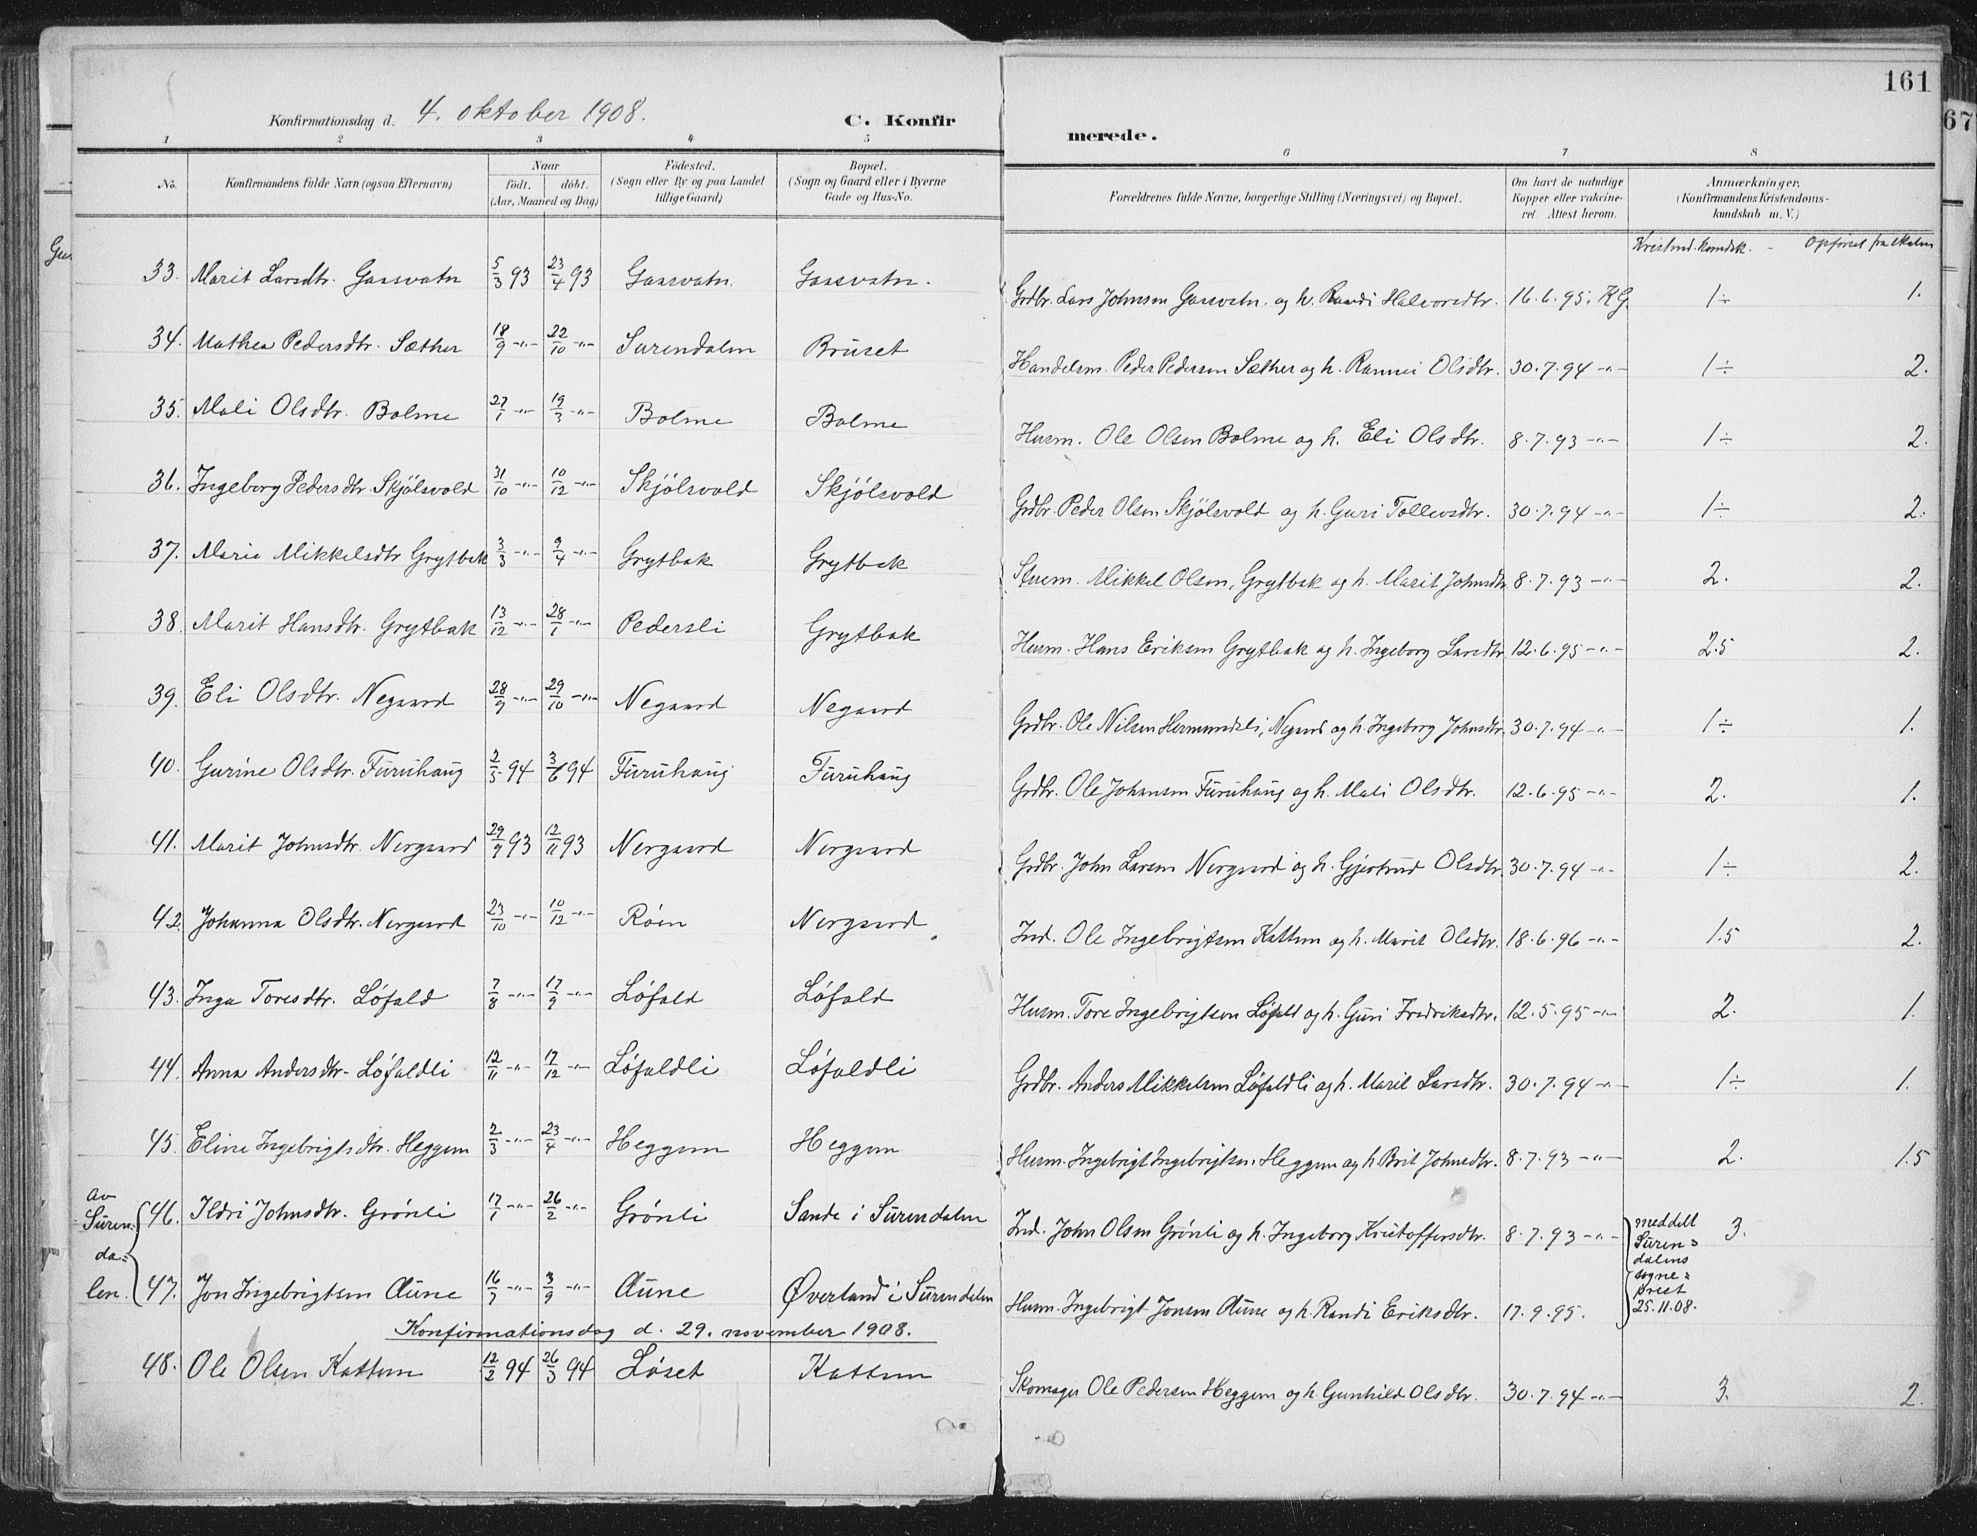 161
67
Konfirmationsdag d. 4. oktober 1908.
C. Konfirmerede.
1 2 3 4 5 6 7 8
No. Konfirmandens fulde Navn (ogsaa Efternavn) Naar født. døbt. (Aar, Maaned og Dag) Fødested. (Sogn eller By og paa Landet tillige Gaard) Bopæl. (Sogn og Gaard eller i Byerne Gade og Hus-No. Forældrenes fulde Navne, borgerlige Stilling (Næringsvei) og Bopæl. Om havt de naturlige Kopper eller vakcineret. Attest herom. Anmærkninger. (Konfirmandens Kristendomskundskab m. V.)
Kristend. kundsk. - Opførsel fra skolen
33. Marit Larsdtr. Gaasvatn 5/3 93 23/4 93 Gaasvatn. Gaasvatn. Grdbr. Lars Johnsen Gaasvatn. og h. Randi Halvorsdtr. 16.6.95. K.G. 1÷ 1.
34. Mathea Pedersdtr. Sæther 18/9 -"- 22/10 -"- Surendalen Bruset Handelsm. Peder Pedersen Sæther og h. Rannei Olsdtr. 30.7.94 -"- 1÷ 2.
35. Mali Olsdtr. Bolme 27/1 -"- 19/3 -"- Bolme Bolme Husm. Ole Olsen Bolme og h. Eli Olsdtr. 8.7.93 -"- 1÷ 2.
36. Ingeborg Pedersdtr Skjølsvold 31/10 -"- 10/12 -"- Skjølsvold Skjølsvold Grdbr. Peder Olsen Skjølsvold og h. Guri Tollevsdtr. 30.7.94 -"- 1÷ 2.
37. Marie Mikkelsdtr Grytbak 3/3 -"- 9/4 -"- Grytbak Grytbak Stuem. Mikkel Olsen, Grytbak og h. Marit Johnsdtr 8.7.93 -"- 2. 2.
38. Marit Hansdtr. Grytbak 13/12 -"- 28/1 -"- Pedersli Grytbak Husm. Hans Eriksen Grytbak og h. Ingeborg Larsdtr 12.6.95 -"- 2.5 2.
39. Eli Olsdtr. Negaard 28/9 -"- 29/10 -"- Negaard Negaard Grdbr. Ole Nilsen Hermundsli, Negaard og h. Ingeborg Johnsdtr. 30.7.94 -"- 1÷ 1.
40. Gurine Olsdtr. Furuhaug 2/3 94 3/6 94 Furuhaug Furuhaug Grdbr. Ole Johansen Furuhaug og h. Mali Olsdtr. 12.6.95 -"- 2. 1.
41. Marit Johnsdtr. Nergaard 29/9 93 12/11 93 Nergaard Nergaard Grdbr. John Larsen Nergaard og h. Gjertrud Olsdtr. 30.7.94 -"- 1÷ 2.
42. Johanna Olsdtr. Nergaard 23/10 -"- 10/12 -"- Røen Nergaard Ind. Ole Ingebrigtsen Kattum og h. Marit Olsdtr. 18.6.96 -"- 1.5 2.
43. Inga Toresdtr. Løfald 7/8 -"- 17/9 -"- Løfald Løfald Husm. Tore Ingebrigtsen Løfald og h. Guri Fredriksdtr. 12.5.95 -"- 2. 1.
44. Anna Andersdtr. Løfaldli 12/11 -"- 17/12 -"- Løfaldli Løfaldli Grdbr. Anders Mikkelsen Løfaldli og h. Marit Larsdtr. 30.7.94 -"- 1÷ 1.
45. Eline Ingebrigtsdtr. Heggem 2/3 -"- 23/4 -"- Heggem Heggem Husm. Ingebrigt Ingebrigtsen Heggem og h. Brit Johnsdtr. 8.7.93 -"- 2. 1.5
av Surendalen.
46. Ildri Johnsdtr. Grønli 17/1 -"- 26/2 -"- Grønli Sande i Surendalen Ind. John Olsen Grønli og h. Ingeborg Kristoffersdtr. 8.7.93 -"- 3.
47. Jon Ingebrigtsen Aune 16/7 -"- 3/9 -"- Aune Øverland i Surendalen Husm. Ingebrigt Jonsen Aune og h. Randi Eriksdtr. 17.9.95.
meddelt Surendalens sogneprest 25.11.08.
Konfirmationsdag d. 29. november 1908.
48. Ole Olsen Kattum 12/2 94 26/3 94 Løset Kattum Skomager Ole Pedersen Heggem og h. Gunhild Olsdtr. 30.7.94 -"- 3. 2.